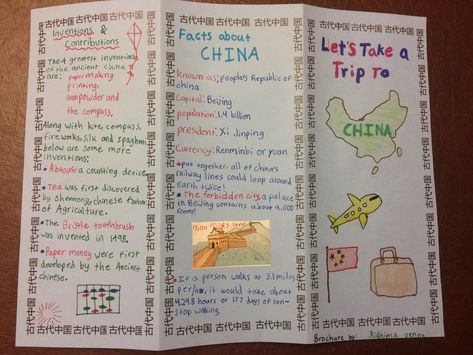 Inventions &
Contributions
The 4 greatest inventions
of the ancient China
are:
papermaking
printing,
gunpowder and
the compass.
Along with kite, compass,
fireworks, silk and spaghetti
below are some more
inventions:
Abacus a counting device
Tea was first discovered
by Shennong, chinese Father
of Agriculture.
The Bristle toothbrush
was invented in 1498.
Paper money were first
developed by the Ancient
Chinese.
古代中国 古代中国 古代中国
Facts about
CHINA
known as: people's Republic of
china
Capital: Beijing
population: 1.4 billion
president: Xi Jinping
Currency: Renminbi or yuan
put together, all of china's
railway lines could loop around
earth twice!
The forbidden city, a palace
in Beijing contains about 9,000
rooms!
long
If a person walks at 3.1 miles
per/hr, it would take about
4298 hours or 177 days of non-
stop walking.
古代中国 古代中国 古代中国
Let's Take a
Trip To
CHINA
Brochure by: